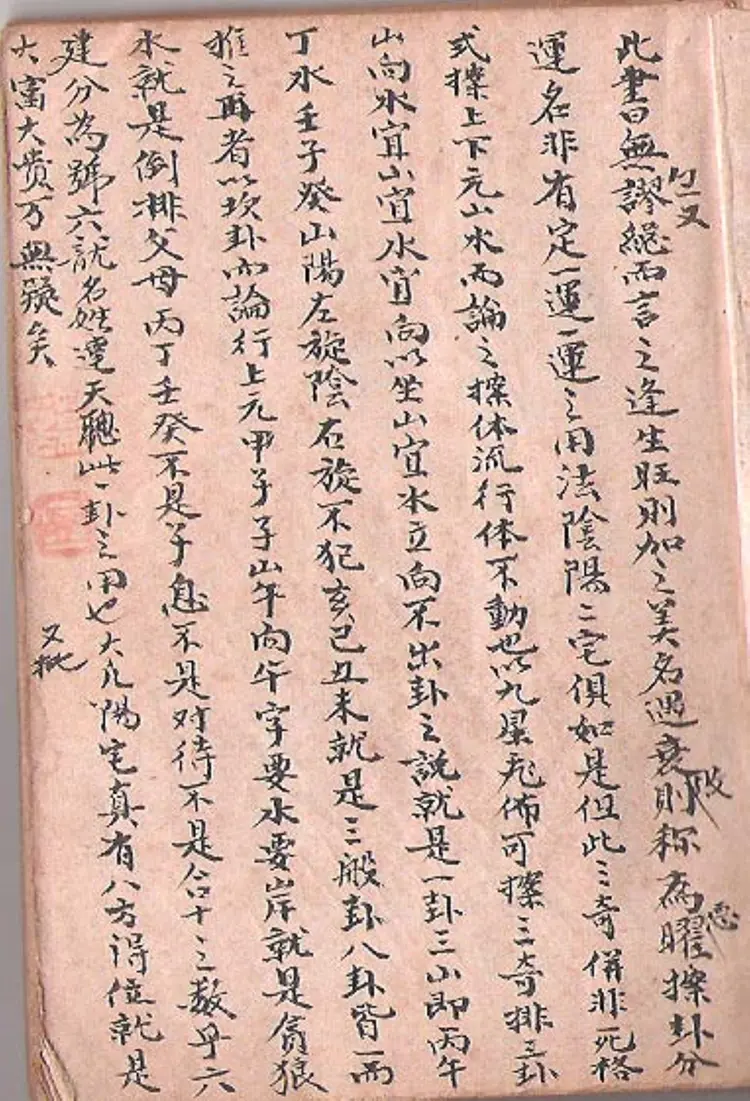 此書曰無謬總而言之逢生旺則加之美名遇衰則称為曜搽卦分
運名非有定一運一運之用法陰陽二宅俱如是但此三奇併非死格
式搽上下元山水而論之搽体流行体不動也以九星飛佈可搽三奇排三卦
山向水宜山宜水宜向以坐山宜水立向不出卦之説就是一卦三山即丙午
丁水壬子癸山陽左旋陰右旋不犯亥巳丑未就是三般卦八卦皆一而
推之再者以坎卦而論行上元甲子子山午向午字要水要岸就是貪狼
水就是倒排父母丙丁壬癸不是子息不是对待不是合十之数乎六
建分為號六就名姓達天聽此一卦之用也大凡陽宅真有八方得位就是
大富大貴万無疑矣
又
敗
惡
又批